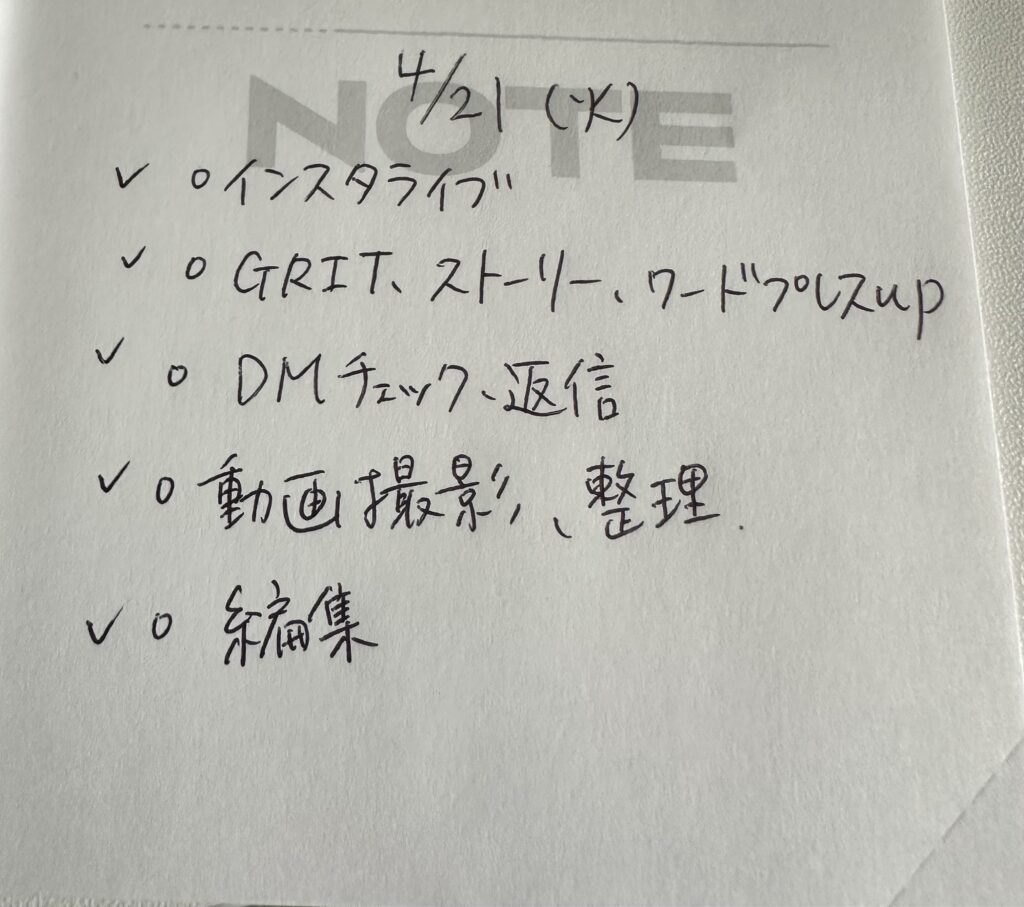 NOTE
4/21 (水)
✓ ○ インスタライブ
✓ ○ GRIT、ストーリー、ワードプレスup
✓ ○ DMチェック、返信
✓ ○ 動画撮影、整理.
✓ ○ 編集